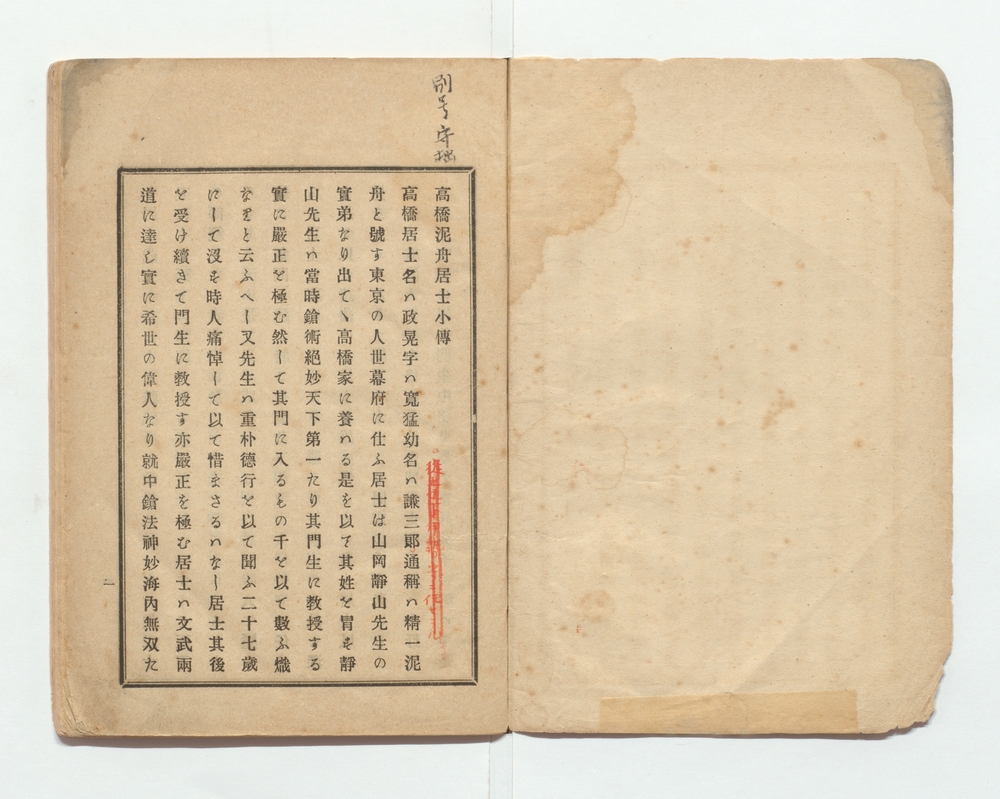 別号守拙
高橋泥舟居士小傳
高橋居士名ハ政晃字ハ寬猛幼名ハ謙三郞通稱ハ精一泥
舟と號す東京の人世幕府に仕ふ居士は山岡靜山先生の
實弟なり出てヽ高橋家に養ハる是を以て其姓を冒す靜
山先生ハ當時鎗術絕妙天下第一たり其門生に教授する
實に嚴正を極む然して其門に入るもの千を以て數ふ熾
なりと云ふへし又先生ハ重朴德行を以て聞ふ二十七歲
にして沒す時人痛悼して以て惜まさるハなし居士其後
を受け續きて門生に教授す亦嚴正を極む居士ハ文武兩
道に達し實に希世の偉人なり就中鎗法神妙海內無双た
一